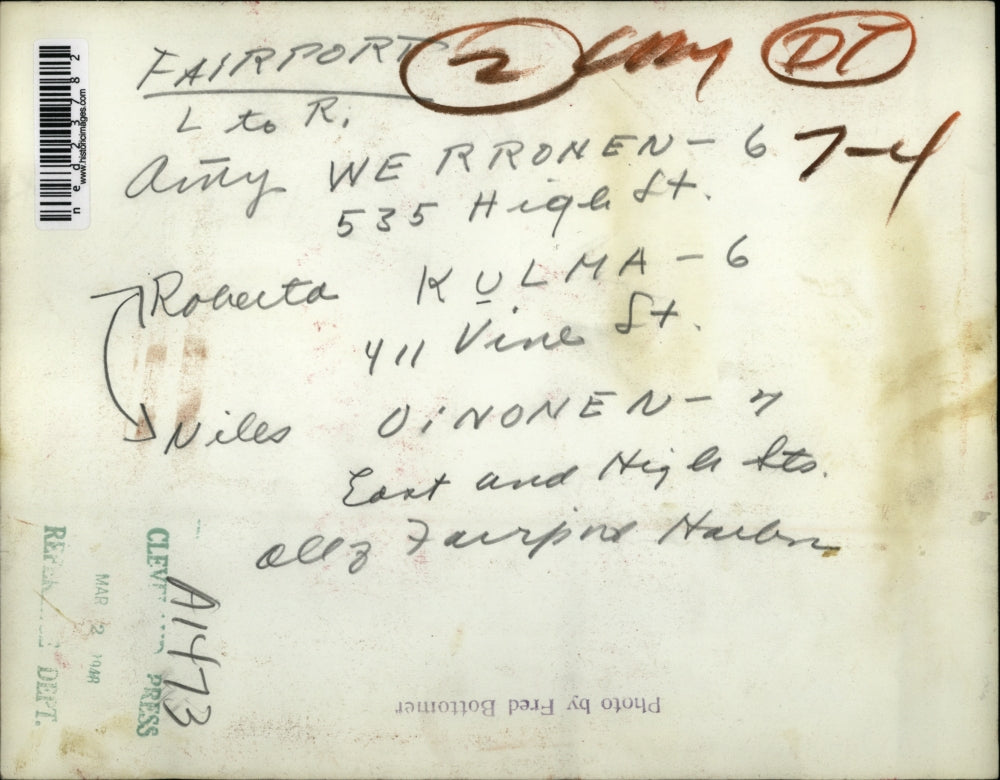 FAIRPORT 2 DT
L to R.
Amy WERRONEN - 6 7-4
535 High St.
Roberta KULMA - 6
411 Vine St.
Niles OiNONEN - 7
East and High Sts.
all of Fairport Harbor
A1473
CLEVELAND PRESS
MAR 2 1948
REFERENCE DEPT.
Photo by Fred Bottomer
www.historicimages.com
ned23782